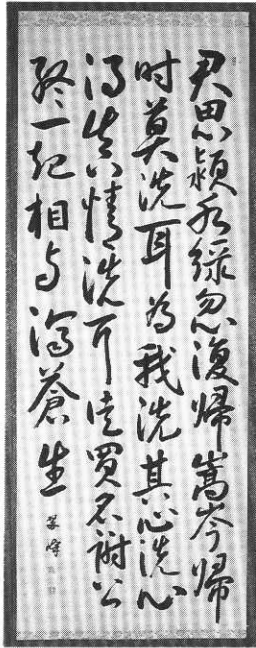 君思潁水緑忽復歸嵩岑歸
时莫洗耳為我洗其心洗心
得真情洗耳徒買名謝公
終一起相与濟蒼生